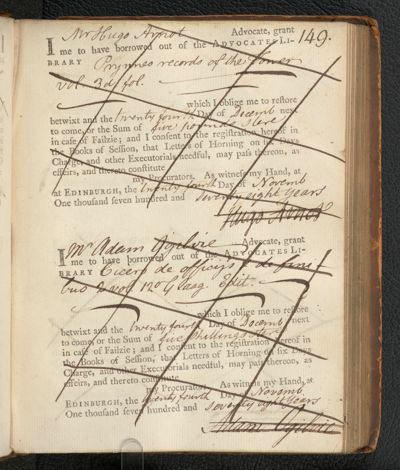 149.
I Mr Hugo Arnot Advocate, grant
me to have borrowed out of the ADVOCATES LI-
BRARY Prynnes records of the Tower
vol. 3d fol.
which I oblige me to restore
betwixt and the twenty fourth Day of Decemb next
to come, or the Sum of five pounds
in case of Failzie; and I consent to the registration hereof in
the Books of Session, that Letters of Horning on six Days
Charge, and other Executorials needful, may pass thereon, as
effeirs, and thereto constitute
my Procurators. As witness my Hand, at
at EDINBURGH, the twenty fourth Day of Novemb
One thousand seven hundred and seventy eight Years
Hugo Arnot
I Mr Adam Ogilvie Advocate, grant
me to have borrowed out of the ADVOCATES LI-
BRARY Cicero de officijs & de fini
bus 2 vol 12o Glasg. Edit.
which I oblige me to restore
betwixt and the twenty fourth Day of Decemb next
to come, or the Sum of five shillings
in case of Failzie; and I consent to the registration hereof in
the Books of Session, that Letters of Horning on six Days
Charge, and other Executorials needful, may pass thereon, as
effeirs, and thereto constitute
my Procurators. As witness my Hand, at
EDINBURGH, the twenty fourth Day of Novemb
One thousand seven hundred and seventy eight Years
Adam Ogilvie